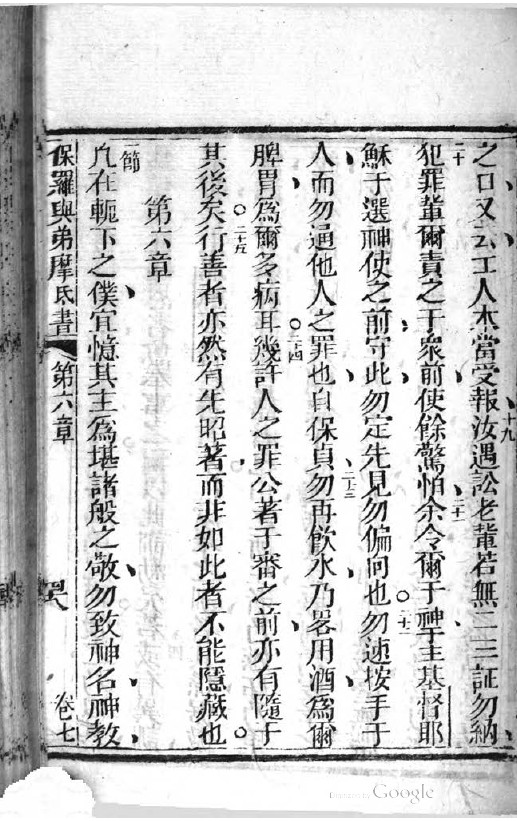 之口又云工人本當受報汝遇訟老輩若無二三証勿納
十九
二十
犯罪輩爾責之于衆前使餘驚怕余令爾于神于主基督耶
二一
穌于選神使之前守此勿定先見勿偏向也勿速按手于
二二
人而勿通他人之罪也自保貞勿再飲水乃畧用酒為爾
二三
脾胃為爾多病耳幾許人之罪公著于審之前亦有隨于
二四
其後矣行善者亦然有先昭著而非如此者不能隱藏也
二五
第六章
一節
凢在軛下之僕宜憶其主為堪諸般之敬勿致神名神教
保羅與弟摩氏書 第六章 卷七
Google